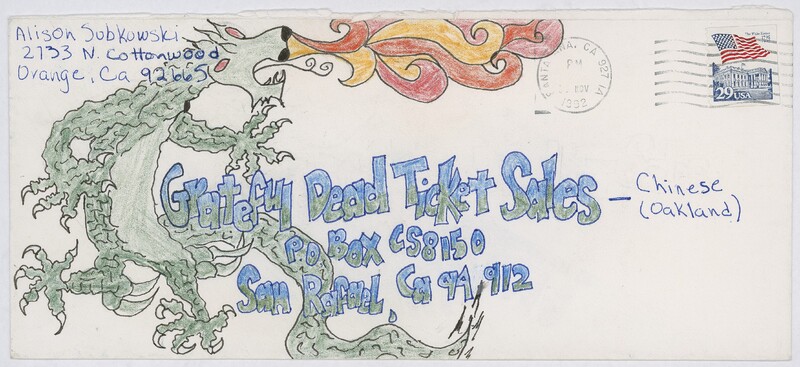 Alison Subkowski
2133 N. Cottonwood
Orange, Ca 92665
SANTA ANA, CA 927 1A
PM
NOV
1992
The White House
29 USA
Grateful Dead Ticket Sales – Chinese
(Oakland)
P.O. Box CS8150
San Rafael, Ca 94912